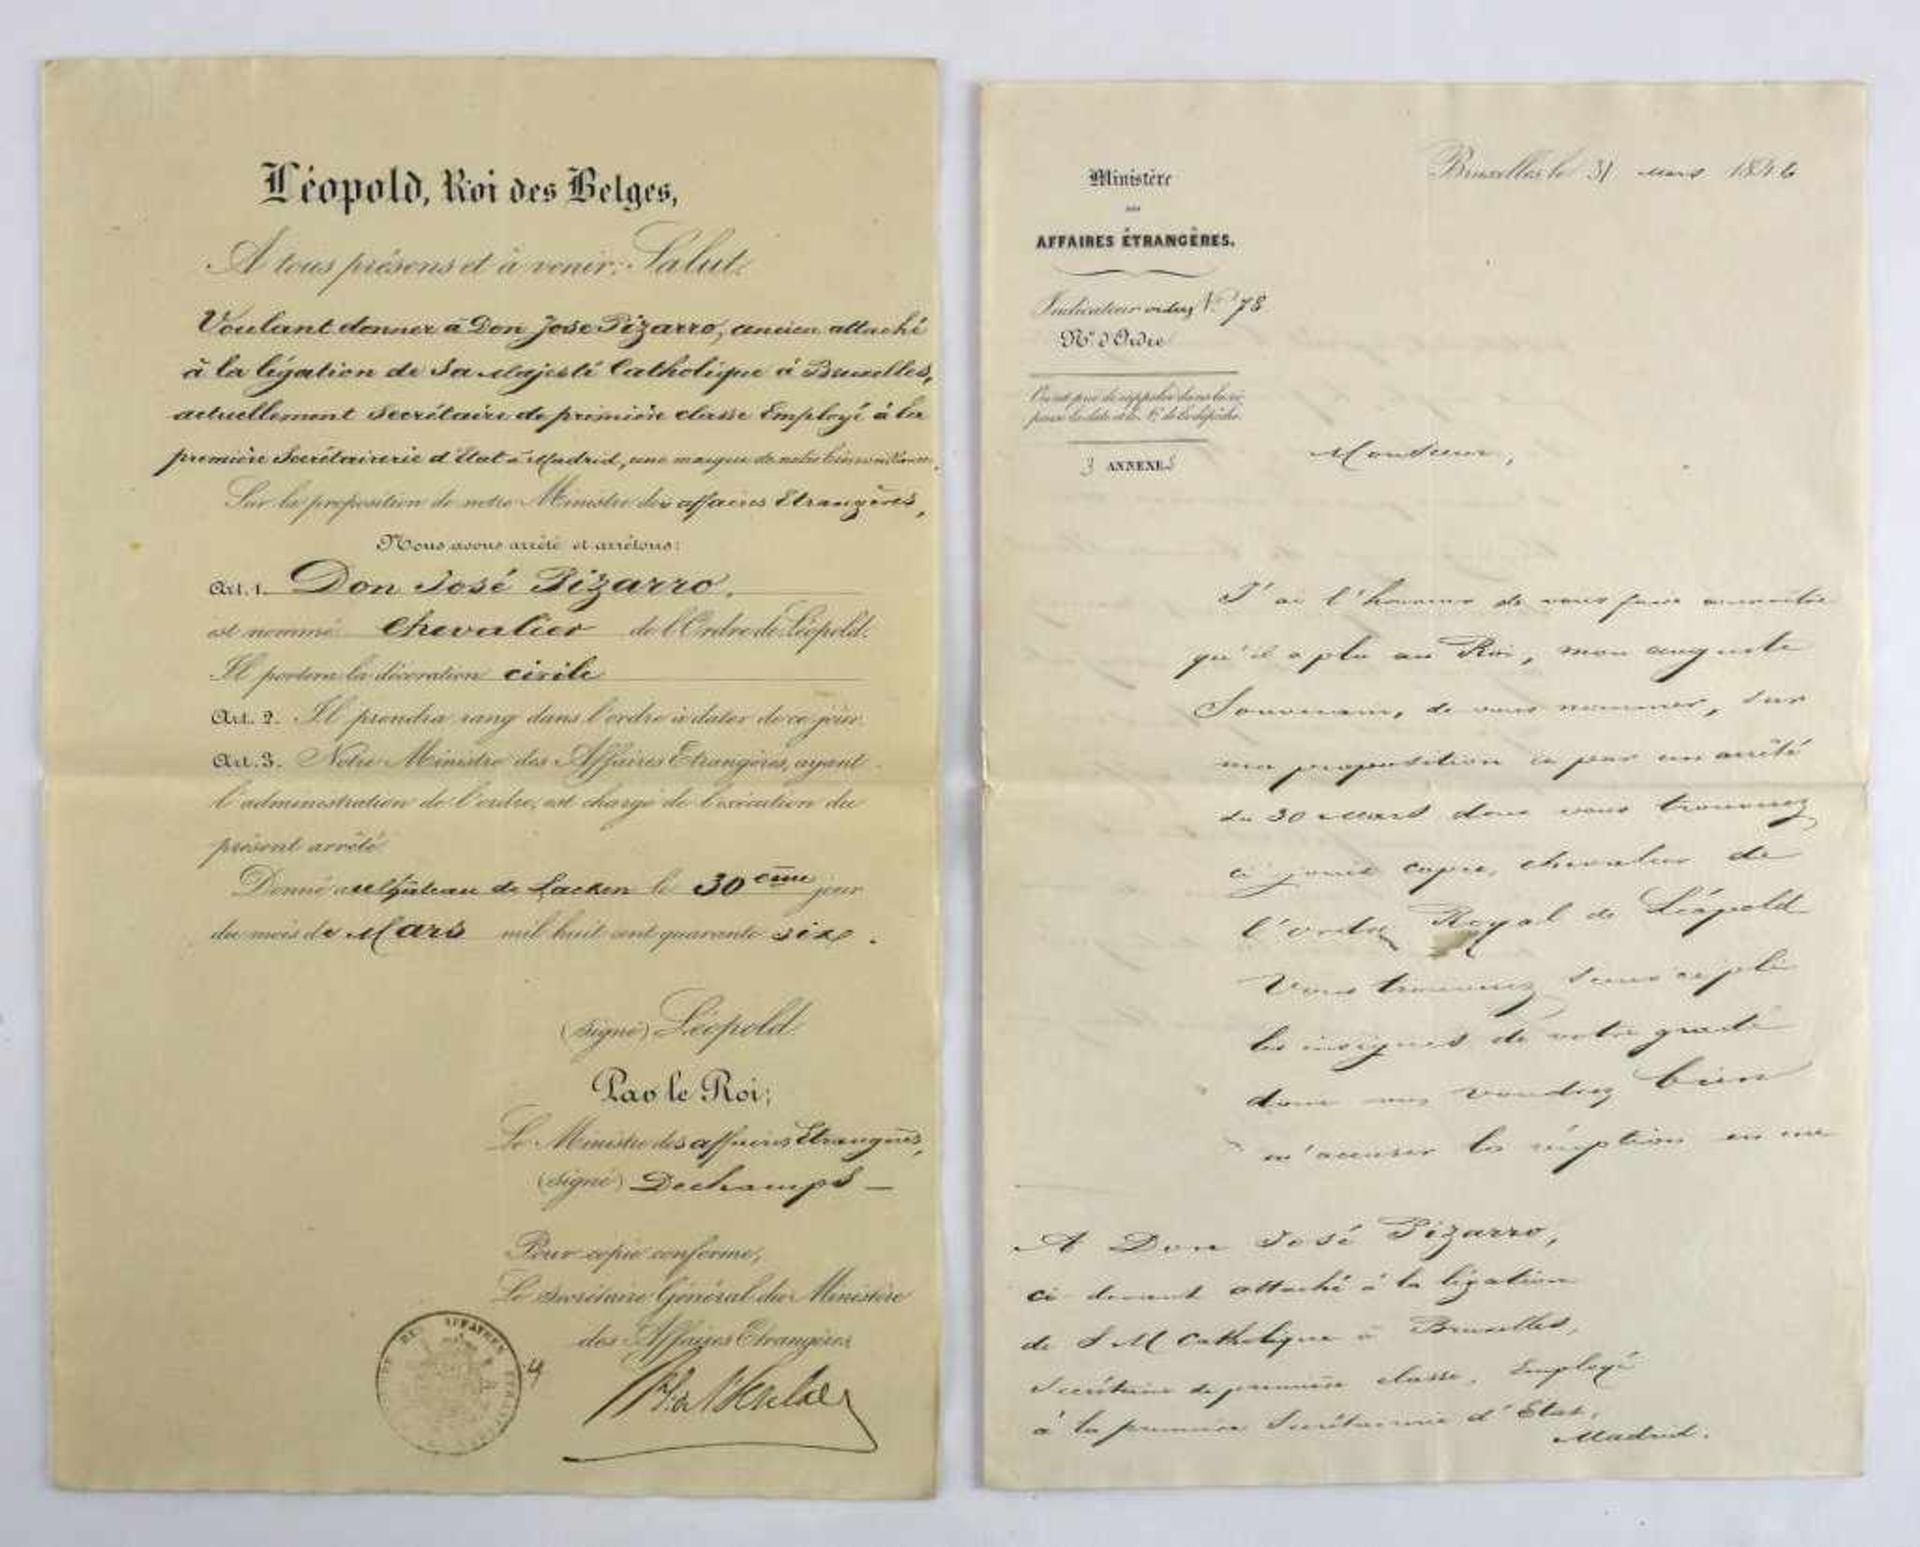 Léopold, Roi des Belges,
A tous présens et à venir, Salut.
Voulant donner à Don Jose Pizarro, ancien attaché
à la légation de Sa Majesté Catholique à Bruxelles,
actuellement Secrétaire de première classe Employé à la
première Secrétairerie d'Etat à Madrid, une marque de notre bienveillance,
Sur la proposition de notre Ministre des affaires Etrangères,
Nous avons arrêté et arrêtons:
Art. 1. Don José Pizarro.
est nommé Chevalier de l'Ordre de Léopold.
Il portera la décoration civile
Art. 2. Il prendra rang dans l'ordre à dater de ce jour.
Art. 3. Notre Ministre des Affaires Etrangères, ayant
l'administration de l'ordre, est chargé de l'exécution du
présent arrêté.
Donné au Château de Lacken le 30 eme jour
du mois de Mars mil huit cent quarante six.
(signé) Léopold.
Par le Roi:
Le Ministre des affaires Etrangères,
(signé) Dechamps
Pour copie conforme,
Le Secrétaire Général du Ministère
des Affaires Etrangères
Ministère
DES
AFFAIRES ÉTRANGÈRES.
Indicateur N.° 78
N.° d'Ordre
3 ANNEXES
Bruxelles, le 31 mars 1846
Monsieur,
J'ai l'honneur de vous faire connaître
qu'il a plu au Roi, mon auguste
Souverain, de vous nommer, sur
ma proposition et par un arrêté
du 30 Mars dont vous trouverez
ci-joint copie, chevalier de
l'ordre Royal de Léopold
Vous trouverez sous ce pli
les insignes de votre grade
dont vous voudrez bien
m'accuser la réception en me
A Don José Pizarro,
ci devant attaché à la légation
de S M Catholique à Bruxelles,
Secrétaire de première classe, Employé
à la première Secrétairerie d'Etat,
Madrid.